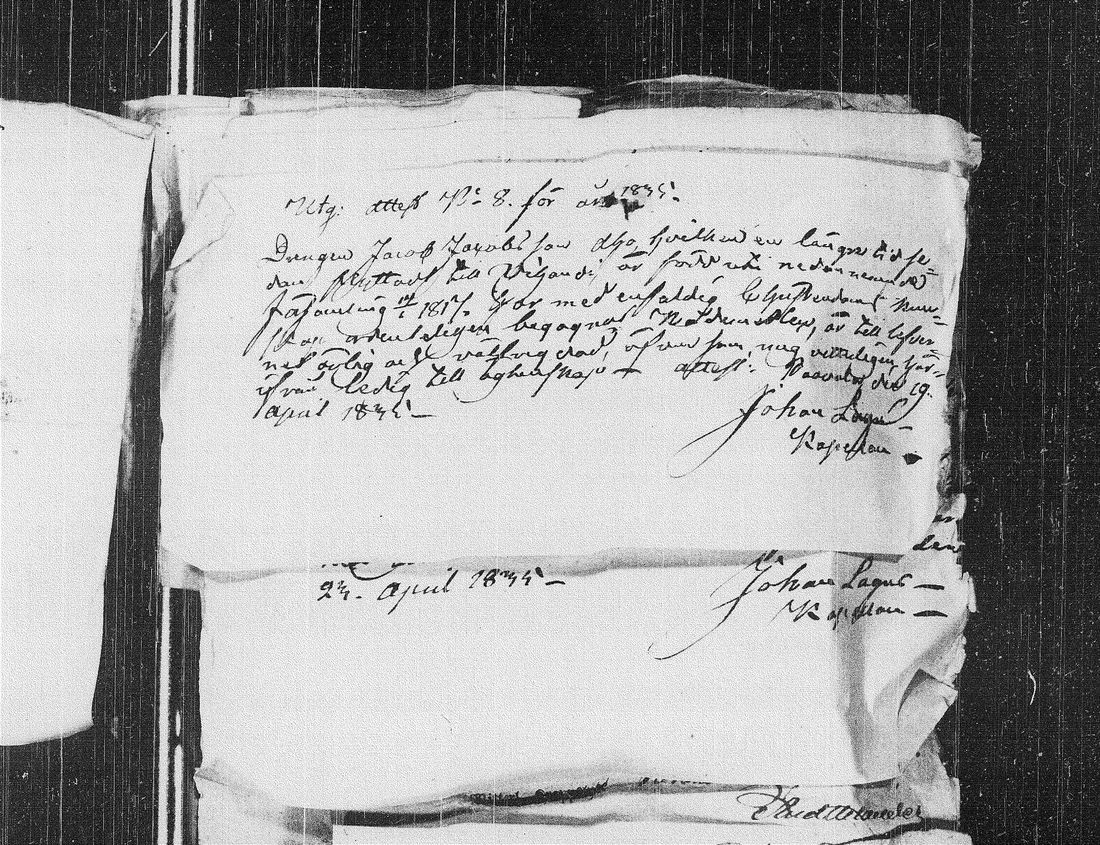 Utg. attest No 8. för år 1835.
Drengen Jacob Jacobsson hvilken en längre tid se-
dan flyttadt till är född uti nedannemnde
församling 14/1 1817. har med enfaldig Christendoms kun-
skap ordenteligen begagnat Nattvarden, är till lefver
net och af som mig vetterligen här-
ifrån ledig till ägtenskap — attest: Paavola den 19.
April 1835 —
Johan Lagus
Kapellan
den
23. April 1835 —
Johan Lagus —
Kapellan —